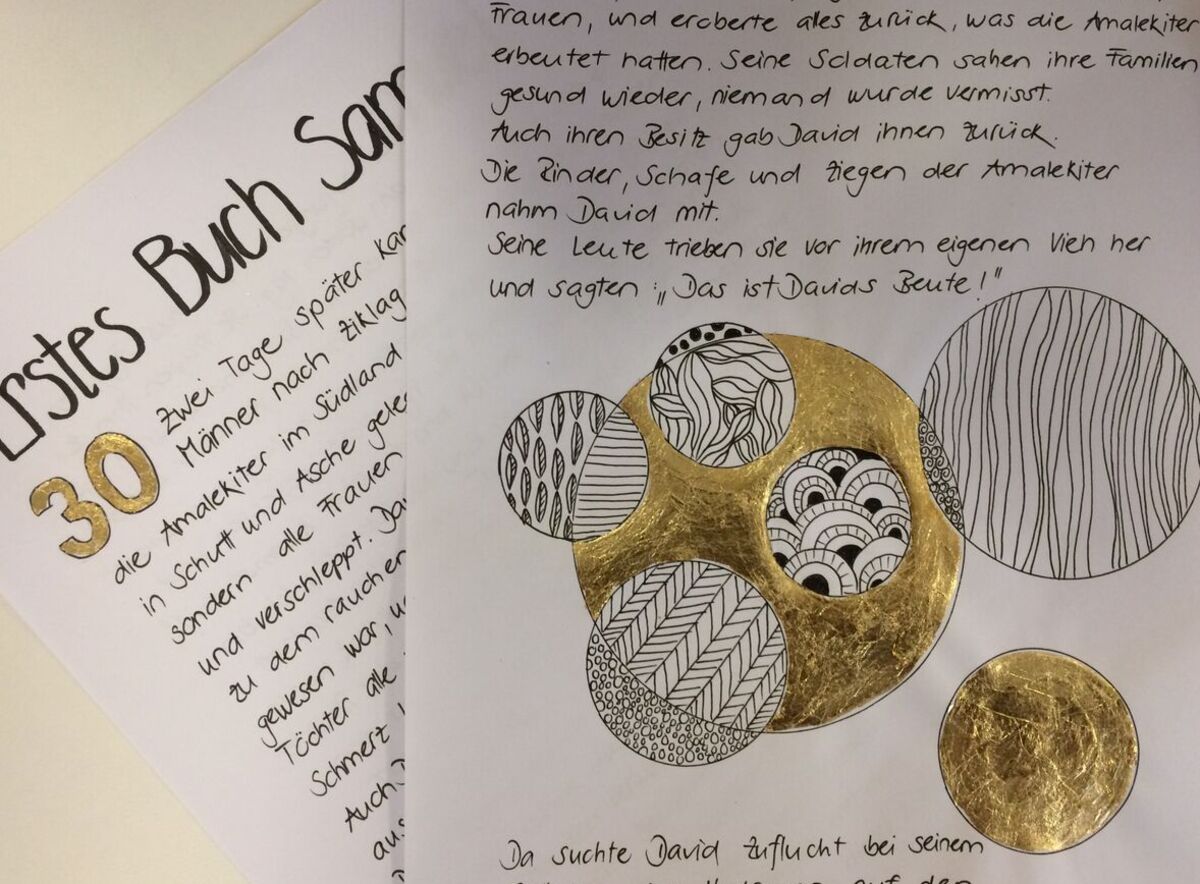 Erstes Buch Sam
30 Zwei Tage später kam
Männer nach Ziklag
die Amalekiter im Südland
in Schutt und Asche gele
sondern alle Frauen
und verschleppt. Da
zu dem rauchen
gewesen war, u
Töchter alle
Schmerz
Auch
aus
Frauen, und eroberte alles zurück, was die Amalekiter
erbeutet hatten. Seine Soldaten sahen ihre Familien
gesund wieder, niemand wurde vermisst.
Auch ihren Besitz gab David ihnen zurück.
Die Rinder, Schafe und Ziegen der Amalekiter
nahm David mit.
Seine Leute trieben sie vor ihrem eigenen Vieh her
und sagten: „Das ist Davids Beute!"
Da suchte David Zuflucht bei seinem
auf den